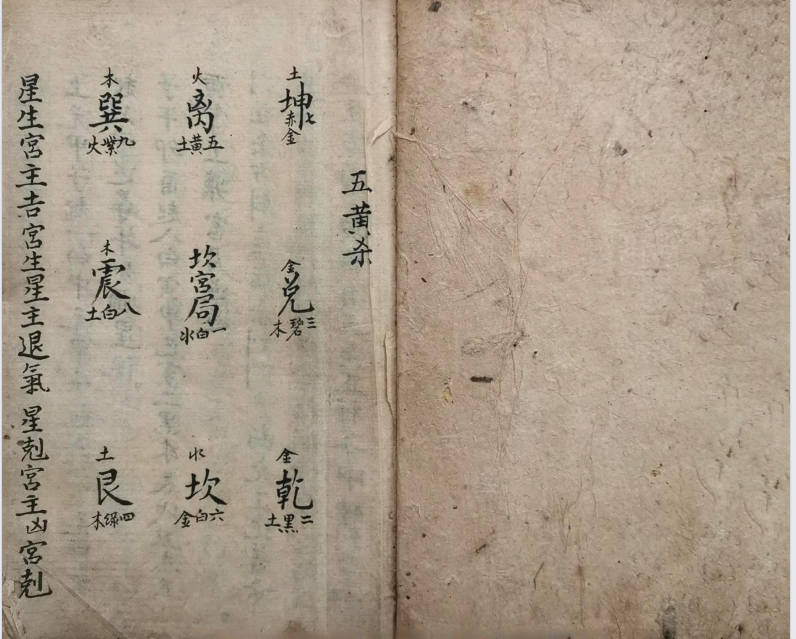 五黄杀
土
坤
七赤金
金
兑
三碧木
金
乾
二黑土
火
离
五黄土
坎宫局
一白水
水
坎
六白金
木
巽
九紫火
木
震
八白土
土
艮
四绿木
星生宫主吉宫生星主退氣星剋宫主凶宫剋